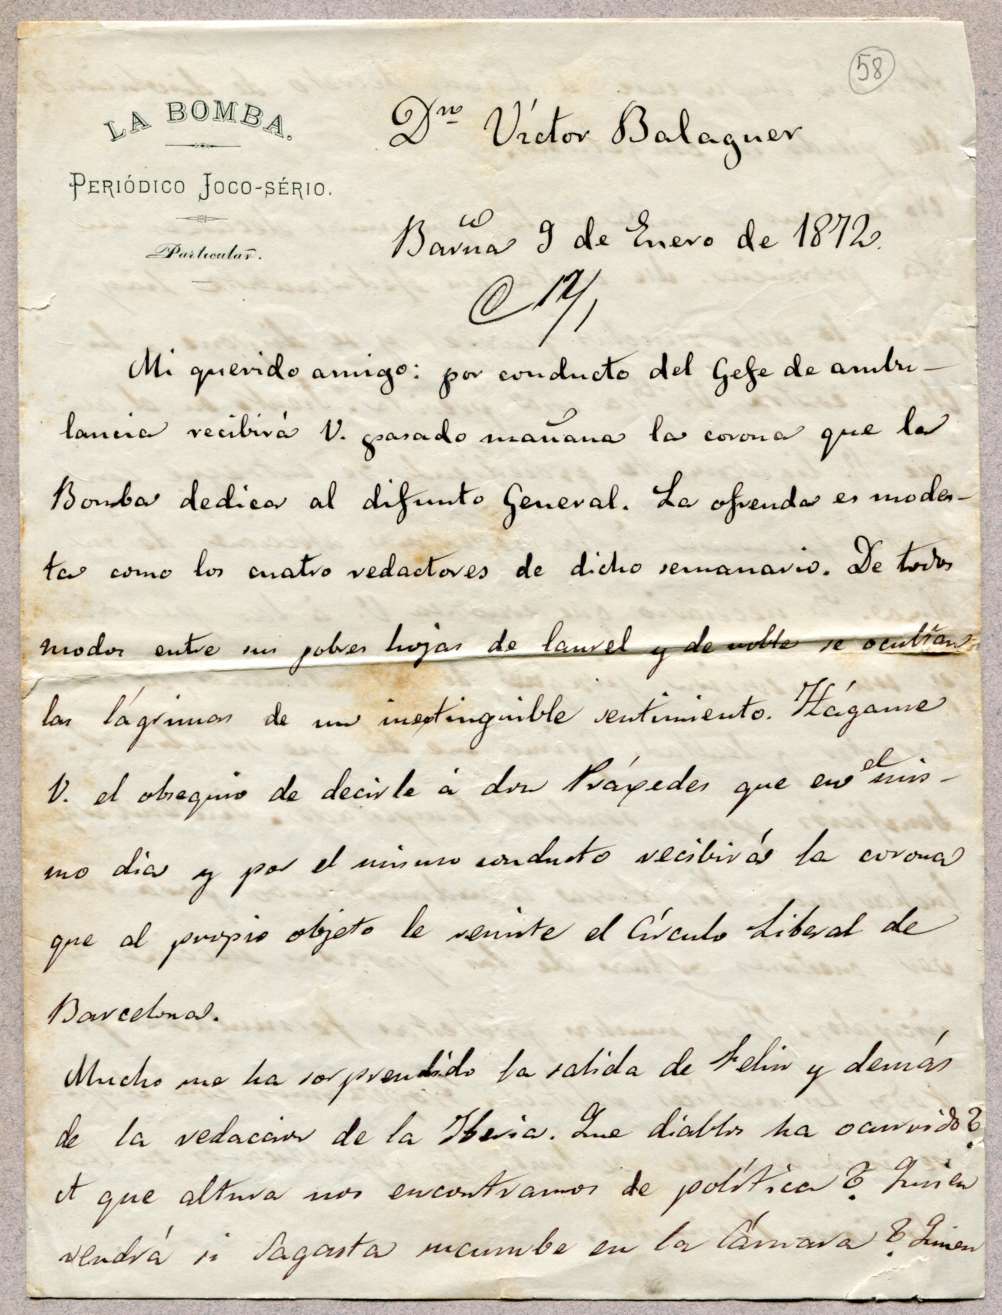 58
LA BOMBA.
PERIÓDICO JOCO-SÉRIO.
Particular.
Dn. Víctor Balaguer
Barna 9 de Enero de 1872.
C 12/1
Mi querido amigo: por conducto del Gefe de ambu-
lancia recibirá V. pasado mañana la corona que la
Bomba dedica al difunto General. La ofrenda es modes-
ta como los cuatro redactores de dicho semanario. De todos
modos entre sus pobres hojas de laurel y de roble se ocultan
las lágrimas de un inextinguible sentimiento. Hágame
V. el obsequio de decirle á don Práxedes que en el mis-
mo dia y por el mismo conducto recibirá la corona
que al propio objeto le remite el Círculo Liberal de
Barcelona.
Mucho me ha sorprendido la salida de Feliu y demás
de la redaccion de la Iberia. Que diablos ha ocurrido?
A que altura nos encontramos de política? Quien
vendrá si Sagasta sucumbe en la Cámara? Quien